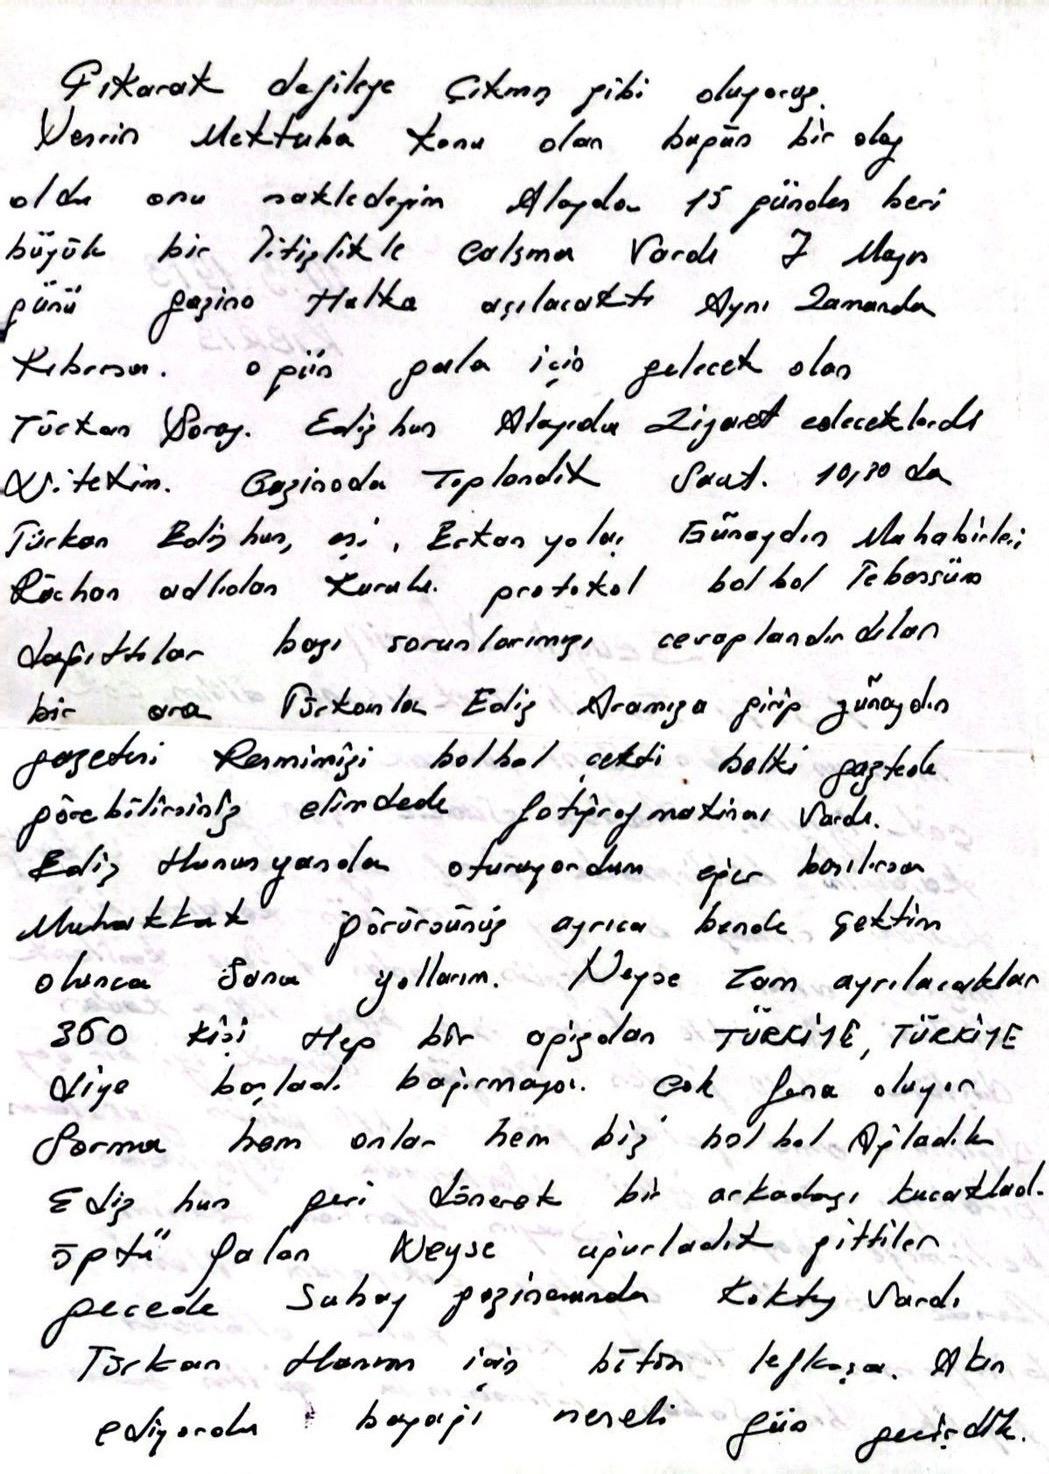 Çıkarak defileye Çıkmış gibi oluyoruz.
Nesrin Mektuba Konu olan bugün bir olay
oldu onu nakledeyim Alayda 15 günden beri
büyük bir Titizlikle Çalışma Vardı 7 Mayıs
günü gazino Halka açılacaktı Aynı Zamanda
Kıbrısa. o gün gala için gelecek olan
Türkan Şoray. Ediz hun Alayıda Ziyaret edeceklerdi
Nitekim. Gazinoda Toplandık Saat. 10,30 da
Türkan Ediz hun, eşi, Erkan yolaç Günaydın Muhabirleri
Rüçhan adlıolan Kurulu. protokol bol bol Tebessüm
dağıttılar bazı sorunlarımızı cevaplandırdılar
bir ara Türkanla Ediz Aramıza girip günaydın
gazetesi Resmimizi bolbol çekti belki gaztede
görebilirsiniz elimdede fotiğraf makinası Vardı.
Ediz Hunun yanıda oturuyordum eğer basılırsa
Muhakkak görürsünüz ayrıca bende çektim
olunca Sana yollarım. Neyse Tam ayrılacaklar
360 kişi Hep bir ağızdan TÜRKİYE, TÜRKİYE
diye başladı bağırmaya. Çok fena oluyor
Sorma hem onlar hem biz bol bol Ağladık
Ediz hun geri dönerek bir arkadaşı kucakladı.
öptü falan Neyse uğurladık gittiler
gecede Subay gazinosunda Kokteyl Vardı
Türkan Hanım için bütün lefkoşa. Akın
ediyordu bayağı neşeli gün geçirdik.